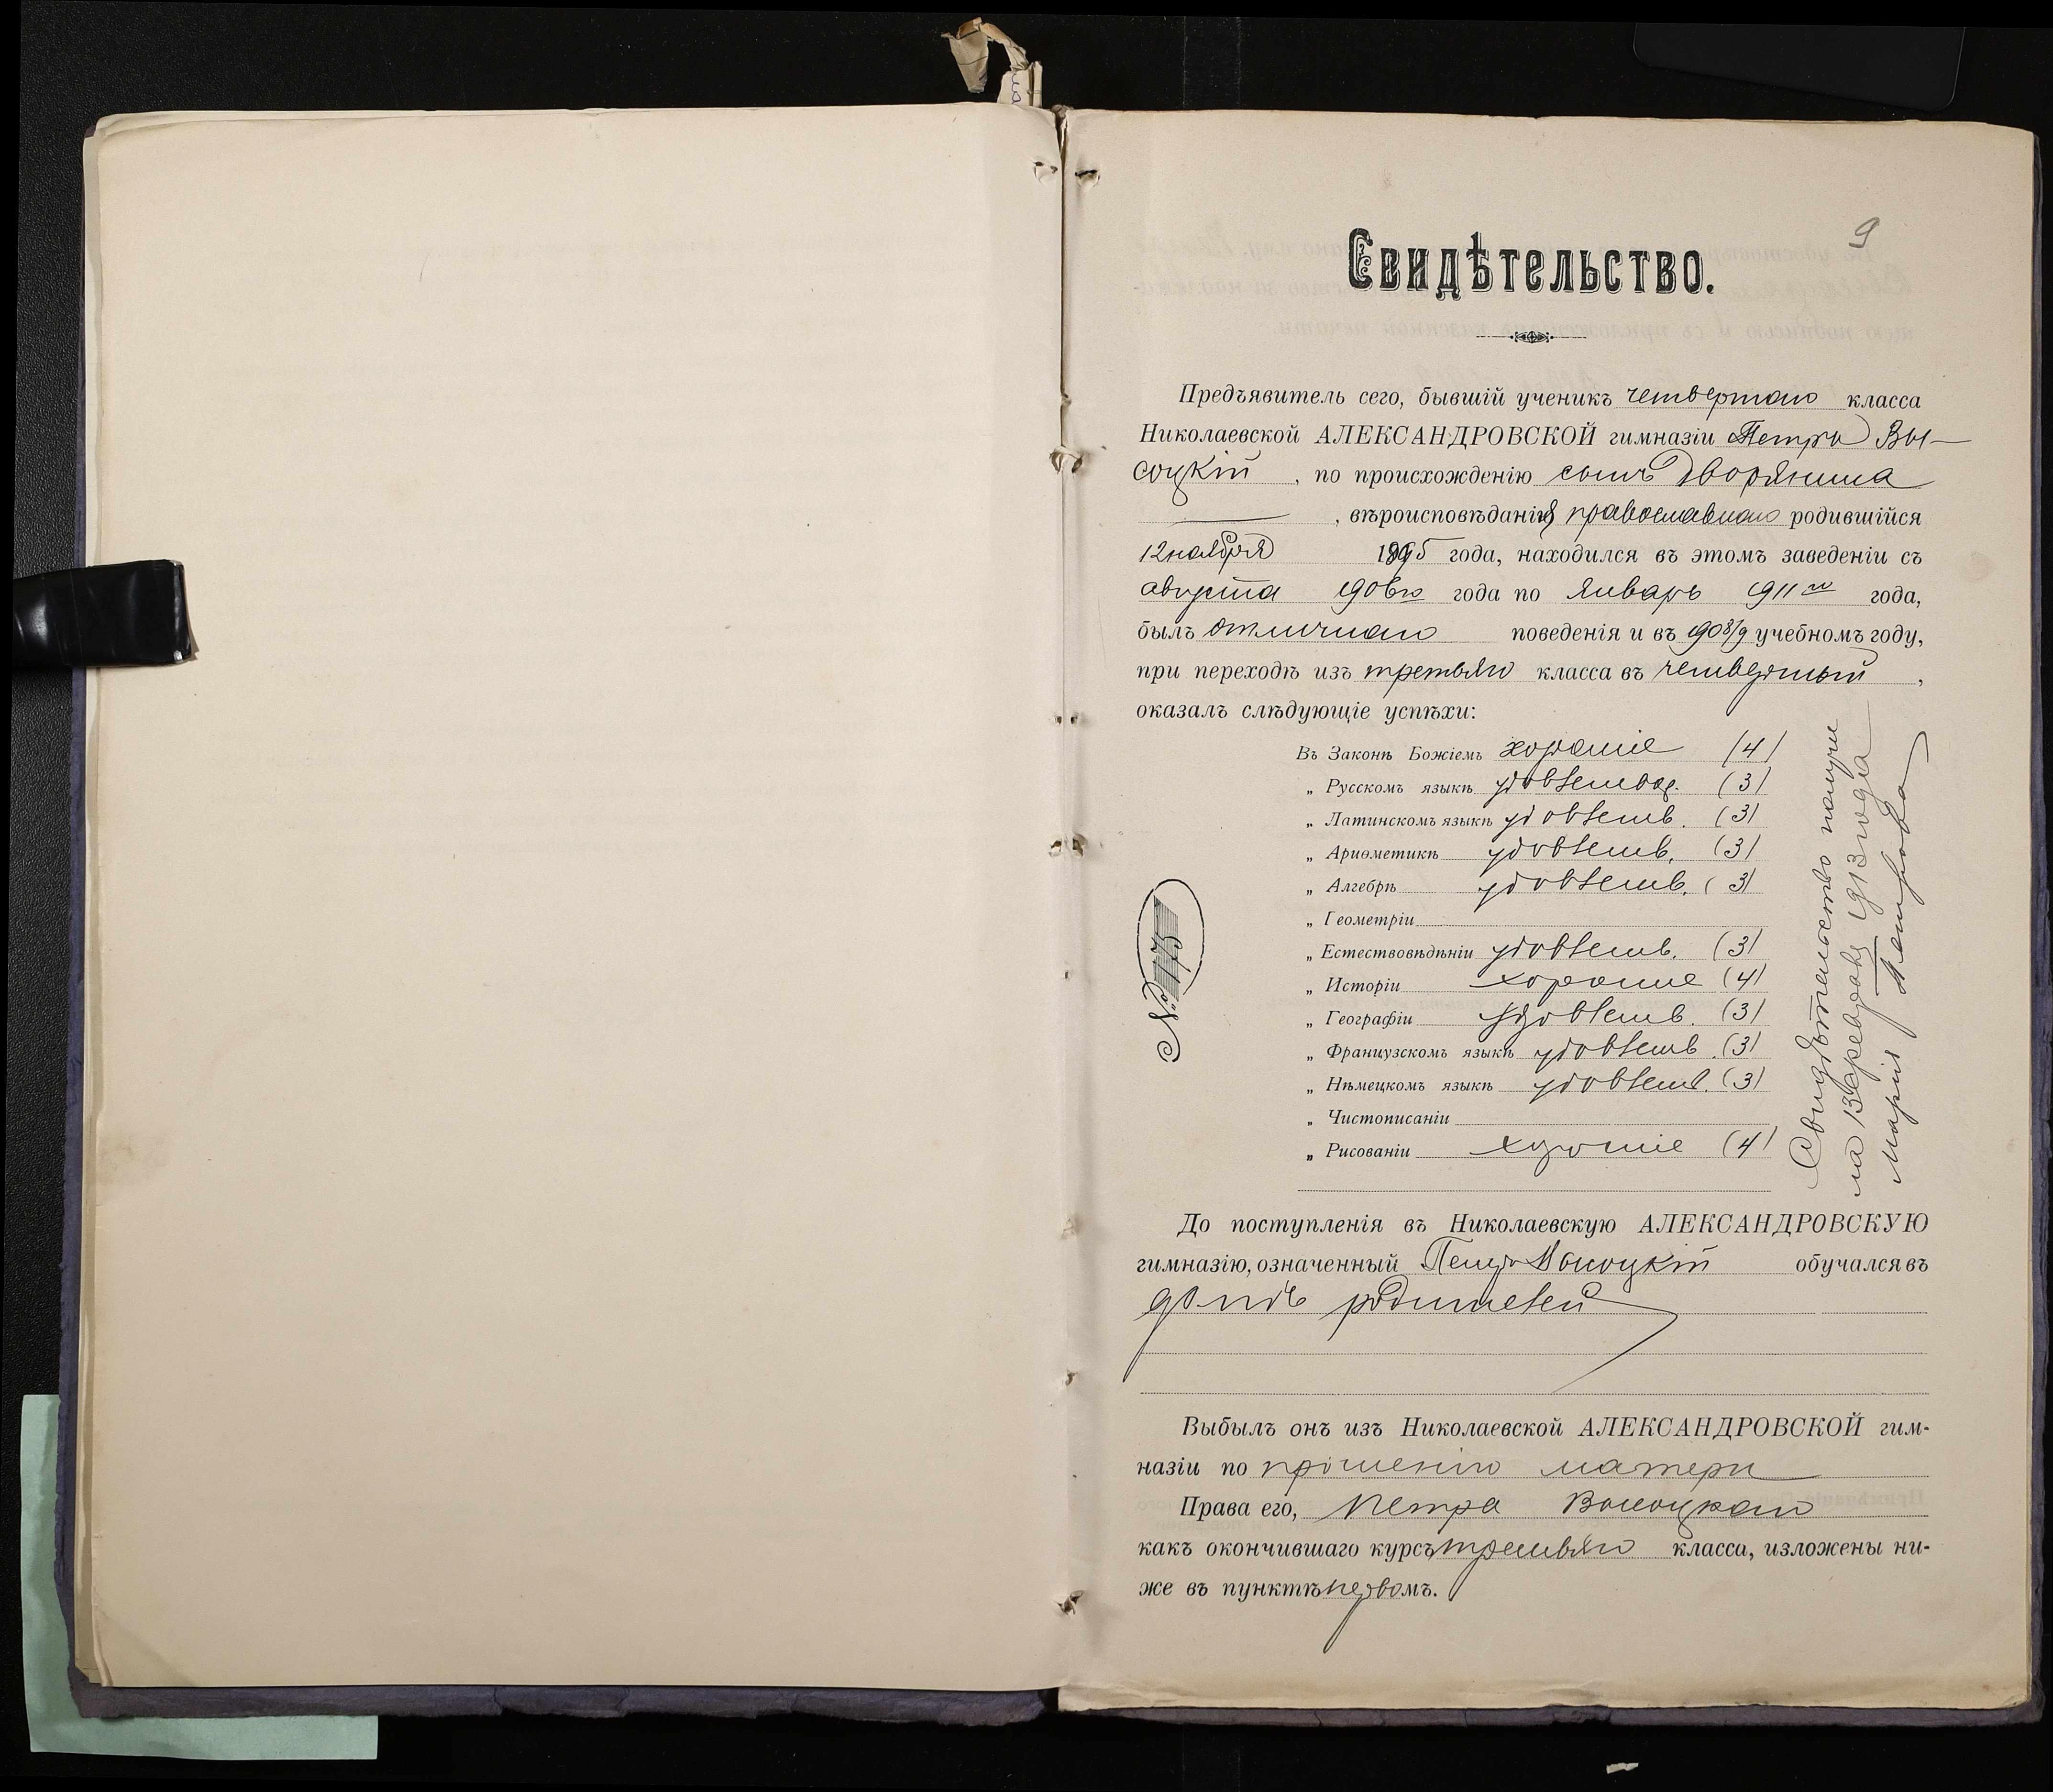 9
Свидѣтельство.
Предъявитель сего, бывшій ученикъ четвертаго класса
Николаевской АЛЕКСАНДРОВСКОЙ гимназіи Петръ Вы-
соцкій, по происхожденію сынъ дворянина
, вѣроисповѣданія православнаго родившійся
12 ноября 1895 года, находился въ этомъ заведеніи съ
августа 1906го года по Январь 1911го года,
былъ отличнаго поведенія и въ 1908/9 учебномъ году,
при переходѣ изъ третьяго класса въ четвертый,
оказалъ слѣдующіе успѣхи:
Въ Законѣ Божіемъ хорошіе (4)
„ Русскомъ языкѣ удовлетвор. (3)
„ Латинскомъ языкѣ удовлетв. (3)
„ Ариѳметикѣ удовлетв. (3)
„ Алгебрѣ удовлетв. (3)
„ Геометріи
„ Естествовѣдѣніи удовлетв. (3)
„ Исторіи хорошіе (4)
„ Географіи удовлетв. (3)
„ Французскомъ языкѣ удовлетв. (3)
„ Нѣмецкомъ языкѣ удовлетв. (3)
„ Чистописаніи
„ Рисованіи хорошіе (4)
№ 175
Свидѣтельство получи
ла 13 февраля 1913 года
Марія Петрова
До поступленія въ Николаевскую АЛЕКСАНДРОВСКУЮ
гимназію, означенный Петръ Высоцкій обучался въ
домѣ родителей
Выбылъ онъ изъ Николаевской АЛЕКСАНДРОВСКОЙ гим-
назіи по прошенію матери
Права его, Петра Высоцкаго
какъ окончившаго курсъ третьяго класса, изложены ни-
же въ пунктѣ первомъ.